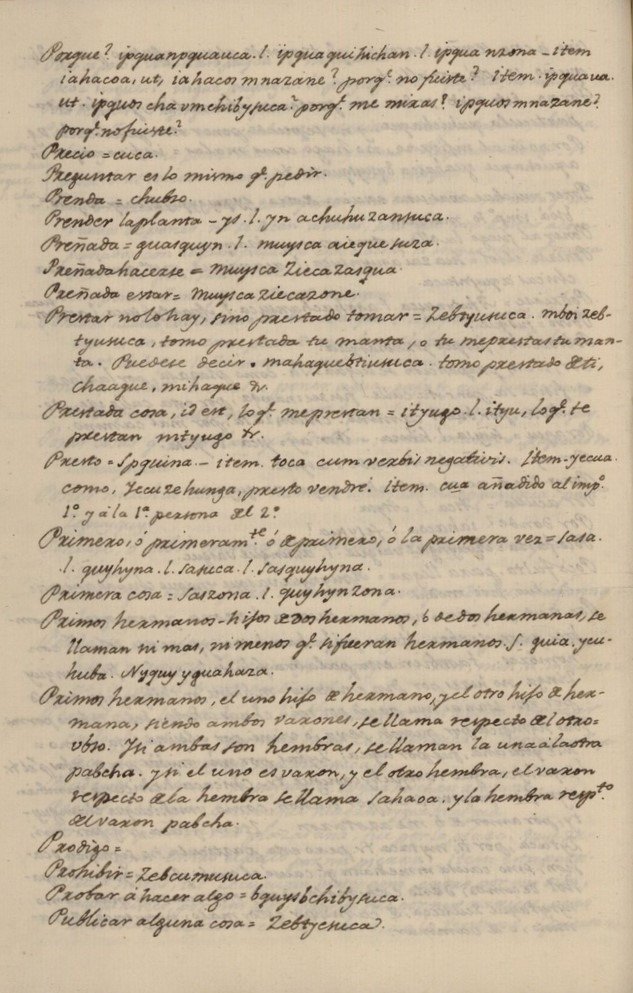 Porque? ipquanpquauca. l. ipquaquihichan. l. ipqua nzona – item
iahacoa, ut, iahacos mnazane? porq.e no fuiste? Item. ipquaua.
ut. ipquos cha vmchibysuca? porq.e me miras? ipquos mnazane?
porq.e no fuiste?
Precio = cuca.
Preguntar es lo mismo q.e pedir.
Prenda = chubzo.
Prender la planta – ys. l. yn achuhuzansuca.
Preñada = guasguyn. l. muysca aieque suza.
Preñada hacerse = muysca ziecazasqua.
Preñada estar = muysca ziecazone.
Prestar no lo hay, sino prestado tomar = Zebtyusuca. mboi zeb-
tyusuca, tomo prestada tu manta, o tu me prestas tu man-
ta. Puedese decir. mahaquebtiusuca. tomo prestado de ti,
chaaque, mihaque &c.
Prestada cosa, id est, lo q.e me prestan = ityugo. l. ityu, lo q.e te
prestan mtyugo &c.
Presto = spquina. – item. toca cum verbis negativis. Item. yecua.
como, Yecuzehunga, presto vendré. item. cua añadido al imp.o
1.o y á la 1.a persona del 2.o
Primero, ó primeram.te ó de primero, ó la primera vez = sasa.
.l. quyhyna. l. sasuca. l. sasquyhyna.
Primera cosa = saszona. l. quyhynzona.
Primos hermanos – hijos de dos hermanos, ó de dos hermanas, se
llaman ni mas, ni menos q.e si fueran hermanos. S. guia. ycu-
huba. Nyquy yguahaza.
Primos hermanos, el uno hijo de hermano, y el otro hijo de her-
mana, siendo ambos varones, se llama respecto del otro =
vbso. Y si ambas son hembras, se llaman la una á la otra
pabcha. y si el uno es varon, y el otro hembra, el varon
respecto de la hembra se llama sahaoa. y la hembra resp.to
del varon pabcha.
Prodigo =
Prohibir = Zebcumusuca.
Probar á hacer algo = bquysbchibysuca.
Publicar alguna cosa = Zebtycsuca.